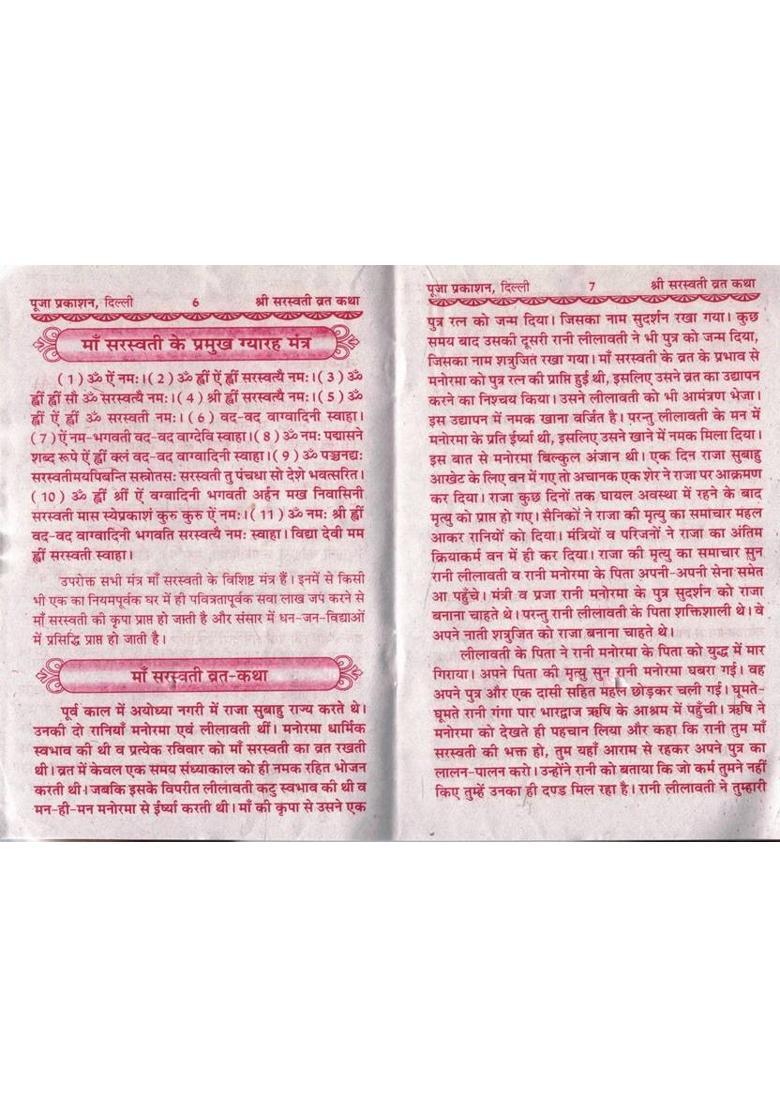 पूजा प्रकाशन, दिल्ली 6 श्री सरस्वती व्रत कथा
माँ सरस्वती के प्रमुख ग्यारह मंत्र
(1) ॐ ऐं नमः। (2) ॐ ह्रीं ऐं ह्रीं सरस्वत्यै नमः। (3) ॐ
ह्रीं ह्रीं सौ ॐ सरस्वत्यै नमः। (4) श्री ह्रीं सरस्वत्यै नमः। (5) ॐ
ह्रीं ऐं ह्रीं ॐ सरस्वती नमः। (6) वद-वद वाग्वादिनी स्वाहा।
(7) ऐं नम-भगवती वद-वद वाग्देवि स्वाहा। (8) ॐ नमः पद्मासने
शब्द रूपे ऐं ह्रीं क्लं वद-वद वाग्वादिनी स्वाहा। (9) ॐ पञ्चनद्यः
सरस्वतीमयपिबन्ति सस्त्रोतसः सरस्वती तु पंचधा सो देशे भवत्सरित।
(10) ॐ ह्रीं श्रीं ऐं वग्वादिनी भगवती अर्हन मख निवासिनी
सरस्वती मास स्येप्रकाशं कुरु कुरु ऐं नमः। (11) ॐ नमः श्री ह्रीं
वद-वद वाग्वादिनी भगवति सरस्वत्यै नमः स्वाहा। विद्या देवी मम
ह्रीं सरस्वती स्वाहा।
उपरोक्त सभी मंत्र माँ सरस्वती के विशिष्ट मंत्र हैं। इनमें से किसी
भी एक का नियमपूर्वक घर में ही पवित्रतापूर्वक सवा लाख जप करने से
माँ सरस्वती की कृपा प्राप्त हो जाती है और संसार में धन-जन-विद्याओं
में प्रसिद्धि प्राप्त हो जाती है।
माँ सरस्वती व्रत-कथा
पूर्व काल में अयोध्या नगरी में राजा सुबाहु राज्य करते थे।
उनकी दो रानियाँ मनोरमा एवं लीलावती थीं। मनोरमा धार्मिक
स्वभाव की थी व प्रत्येक रविवार को माँ सरस्वती का व्रत रखती
थी। व्रत में केवल एक समय संध्याकाल को ही नमक रहित भोजन
करती थी। जबकि इसके विपरीत लीलावती कटु स्वभाव की थी व
मन-ही-मन मनोरमा से ईर्ष्या करती थी। माँ की कृपा से उसने एक
पूजा प्रकाशन, दिल्ली 7 श्री सरस्वती व्रत कथा
पुत्र रत्न को जन्म दिया। जिसका नाम सुदर्शन रखा गया। कुछ
समय बाद उसकी दूसरी रानी लीलावती ने भी पुत्र को जन्म दिया,
जिसका नाम शत्रुजित रखा गया। माँ सरस्वती के व्रत के प्रभाव से
मनोरमा को पुत्र रत्न की प्राप्ति हुई थी, इसलिए उसने व्रत का उद्यापन
करने का निश्चय किया। उसने लीलावती को भी आमंत्रण भेजा।
इस उद्यापन में नमक खाना वर्जित है। परन्तु लीलावती के मन में
मनोरमा के प्रति ईर्ष्या थी, इसलिए उसने खाने में नमक मिला दिया।
इस बात से मनोरमा बिल्कुल अंजान थी। एक दिन राजा सुबाहु
आखेट के लिए वन में गए तो अचानक एक शेर ने राजा पर आक्रमण
कर दिया। राजा कुछ दिनों तक घायल अवस्था में रहने के बाद
मृत्यु को प्राप्त हो गए। सैनिकों ने राजा की मृत्यु का समाचार महल
आकर रानियों को दिया। मंत्रियों व परिजनों ने राजा का अंतिम
क्रियाकर्म वन में ही कर दिया। राजा की मृत्यु का समाचार सुन
रानी लीलावती व रानी मनोरमा के पिता अपनी-अपनी सेना समेत
आ पहुँचे। मंत्री व प्रजा रानी मनोरमा के पुत्र सुदर्शन को राजा
बनाना चाहते थे। परन्तु रानी लीलावती के पिता शक्तिशाली थे। वे
अपने नाती शत्रुजित को राजा बनाना चाहते थे।
लीलावती के पिता ने रानी मनोरमा के पिता को युद्ध में मार
गिराया। अपने पिता की मृत्यु सुन रानी मनोरमा घबरा गई। वह
अपने पुत्र और एक दासी सहित महल छोड़कर चली गई। घूमते-
घूमते रानी गंगा पार भारद्वाज ऋषि के आश्रम में पहुँची। ऋषि ने
मनोरमा को देखते ही पहचान लिया और कहा कि रानी तुम माँ
सरस्वती की भक्त हो, तुम यहाँ आराम से रहकर अपने पुत्र का
लालन-पालन करो। उन्होंने रानी को बताया कि जो कर्म तुमने नहीं
किए तुम्हें उनका ही दण्ड मिल रहा है। रानी लीलावती ने तुम्हारी